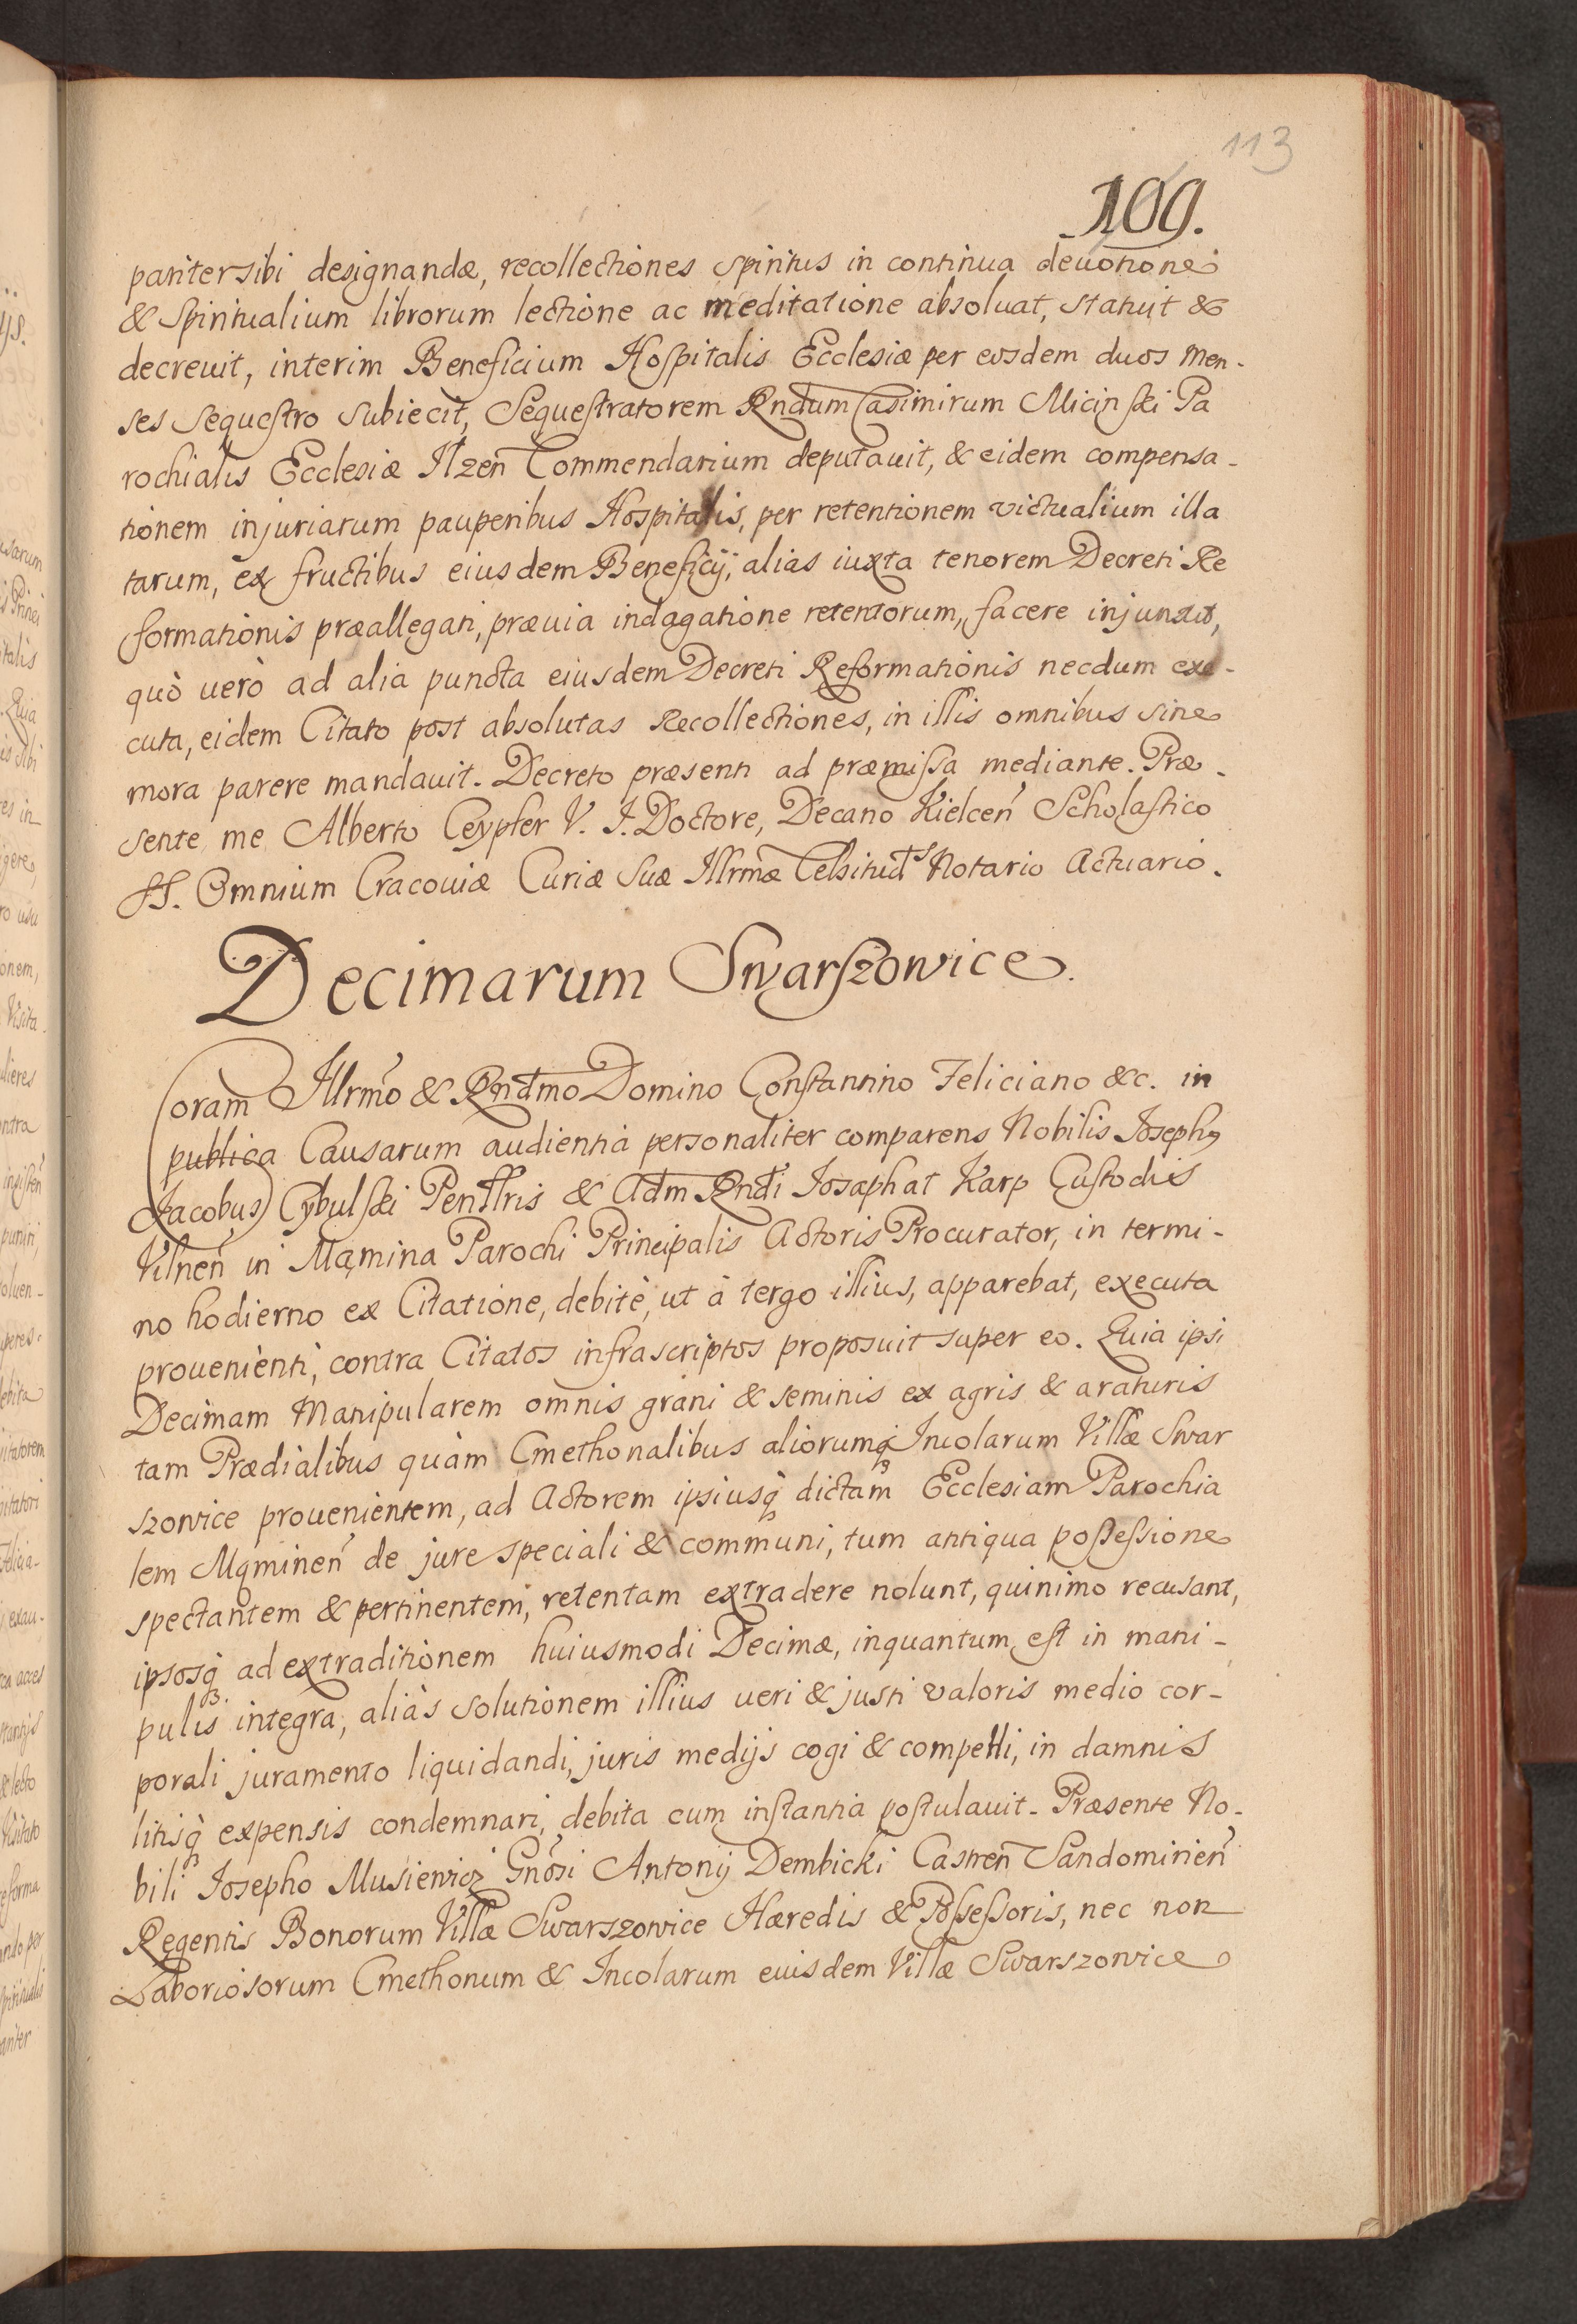 113
109.
pariter sibi designandæ, recollectiones spiritus in continua deuotione
& spiritualium librorum lectione ac meditatione absoluat, statuit &
decreuit, interim Beneficium Hospitalis Ecclesiæ per eosdem duos men-
ses sequestro subiecit, Sequestratorem Rndum Casimirum Micinski Pa
rochialis Ecclesiæ Ilzen̄ Commendarium deputauit, & eidem compensa-
tionem injuriarum pauperibus Hospitalis, per retentionem victualium illa
tarum, ex fructibus eiusdem Beneficij, alias iuxta tenorem Decreti Re
formationis præallegati, præuia indagatione retentorum, facere injunxit,
quò uerò ad alia puncta eiusdem Decreti Reformationis necdum exe-
cuta, eidem Citato post absolutas Recollectiones, in illis omnibus sine
mora parere mandauit. Decreto præsenti ad præmissa mediante. Præ-
sente me Alberto Ceypler V. I. Doctore, Decano Kielcen̄ Scholastico
SS. Omnium Cracouiæ Curiæ Suæ Illrmæ Celsitud̄s Notario Actuario.
Decimarum Swarszowice.
Coram Illrmo & Rndmo Domino Constantino Feliciano &c. in
publica Causarum audientia personaliter comparens Nobilis Josephus
Jacobus Cybulski Penllris & Adm Rndi Iosaphat Karp Custodis
Vilnen̄ in Mąmina Parochi Principalis Actoris Procurator, in termi-
no hodierno ex Citatione, debitè, ut à tergo illius, apparebat, executa
prouenienti, contra Citatos infrascriptos proposuit super eo. Quia ipsi
Decimam Manipularem omnis grani & seminis ex agris & araturis
tam Prædialibus quàm Cmethonalibus aliorumq; Incolarum Villæ Swar
szowice prouenientem, ad Actorem ipsiusq; dictam Ecclesiam Parochia
lem Mąminen̄ de jure speciali & communi, tum antiqua possessione
spectantem & pertinentem, retentam extradere nolunt, quinimo recusant,
ipsosq; ad extraditionem huiusmodi Decimæ, inquantum est in mani-
pulis integra, aliàs solutionem illius ueri & justi valoris medio cor-
porali juramento liquidandi, juris medijs cogi & compelli, in damnis
litisq; expensis condemnari, debita cum instantia postulauit. Præsente No-
bili Iosepho Musiewicz Gnosi Antonij Dembicki Castren̄ Sandomirien̄
Regentis Bonorum Villæ Swarszowice Hæredis & Possessoris, nec non
Laboriosorum Cmethonum & Incolarum euisdem Villæ Swarszowice